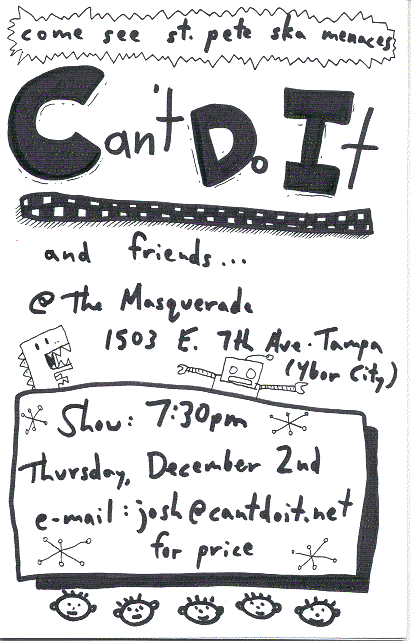 come see st. pete ska menaces
Can't Do It
and friends...
@ The Masquerade
1503 E. 7th Ave. Tampa
(Ybor City)
Show: 7:30pm
Thursday, December 2nd
e-mail: josh@cantdoit.net
for price